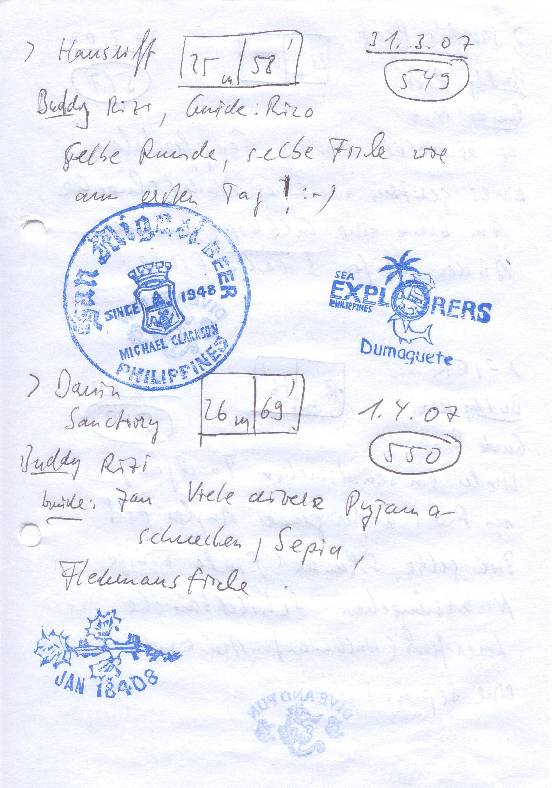 > Hausriff 25 m 58' 31.3.07
549
Buddy Rizi, Guide: Rizo
gelbe Runde, selbe Fische wie
am ersten Tag! :-)
San Miguel BEER
SINCE 1948
MICHAEL CLARKSON
PHILIPPINES
SEA
EXPLORERS
PHILIPPINES
Dumaguete
> Dauin 26 m 69' 1.4.07
Sanctury
550
Buddy Rizi
Guide: Jan Viele diverse Pyjama
schnecken, Sepia,
JAN 18408
DIVE AND FUN